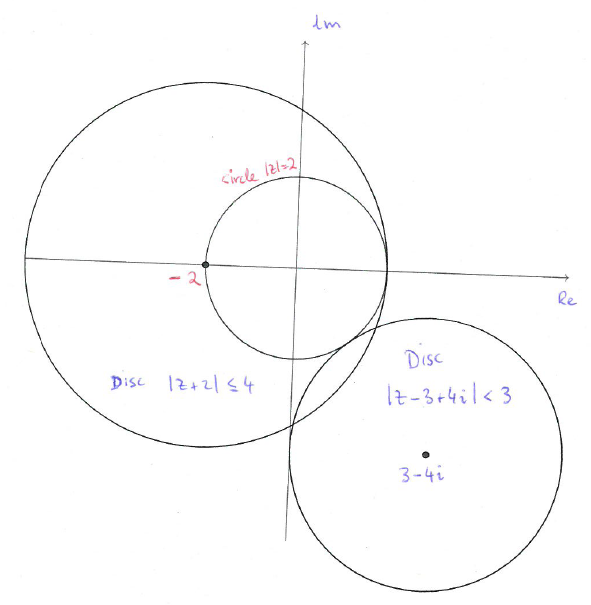 Im
circle |z|=2
-2
Re
Disc |z+2| ≤ 4
Disc
|z-3+4i| < 3
3-4i